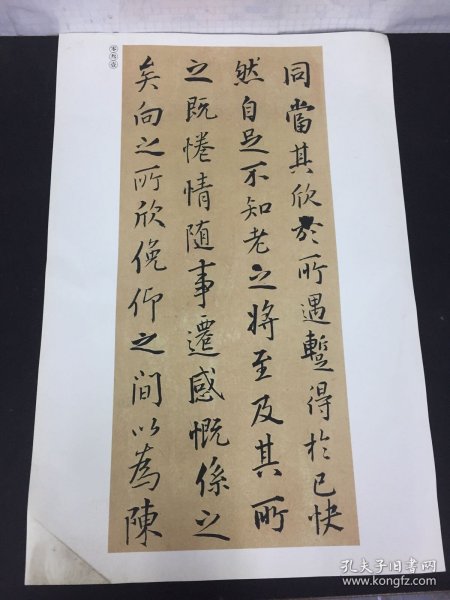 同當其欣於所遇蹔得於己快
然自足不知老之將至及其所
之既惓情随事遷感慨係之
矣向之所欣俛仰之間以為陳
零叁壹
孔夫子旧书网
www.kongfz.com